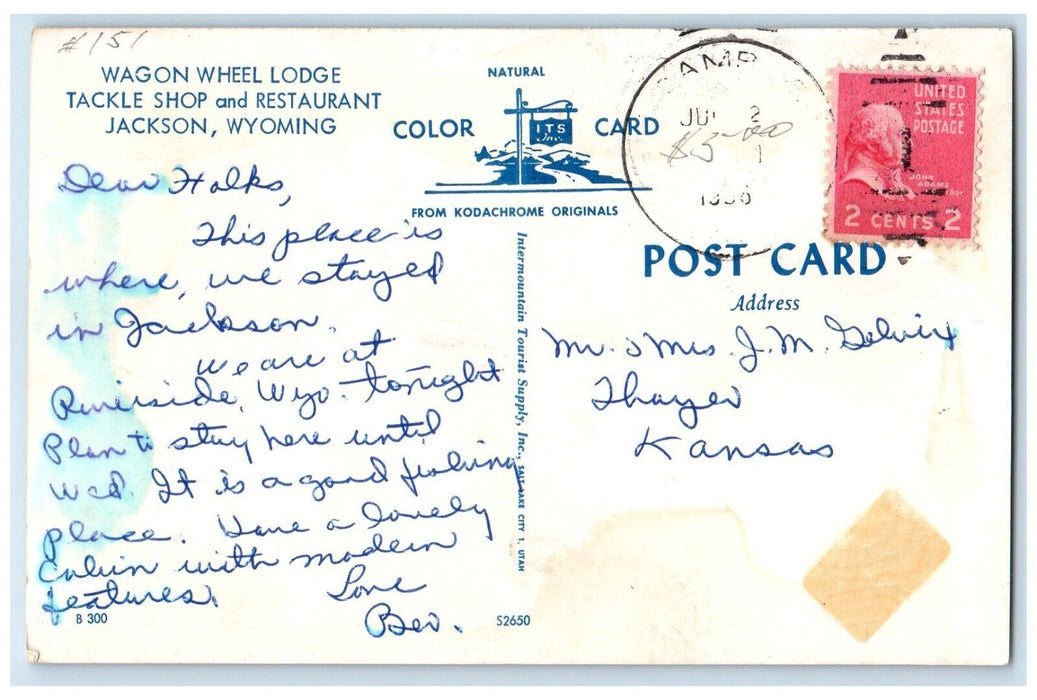 #151
WAGON WHEEL LODGE
TACKLE SHOP and RESTAURANT
JACKSON, WYOMING
NATURAL
COLOR CARD
ITS
Inc.
FROM KODACHROME ORIGINALS
JUL 2
1
$5.00
UNITED
STATES
POSTAGE
JOHN
ADAMS
2 CENTS 2
Dear Folks,
This place is
where, we stayed
in Jackson.
We are at
Riverside, Wyo. tonight
Plan to stay here until
Wed. It is a good fishing
place. Have a lovely
Cabin with modern
features.
Love
Bev.
B 300
S2650
Intermountain Tourist Supply, Inc., SALT LAKE CITY 1, UTAH
POST CARD
Address
Mr. & Mrs J. M.
Thayer
Kansas